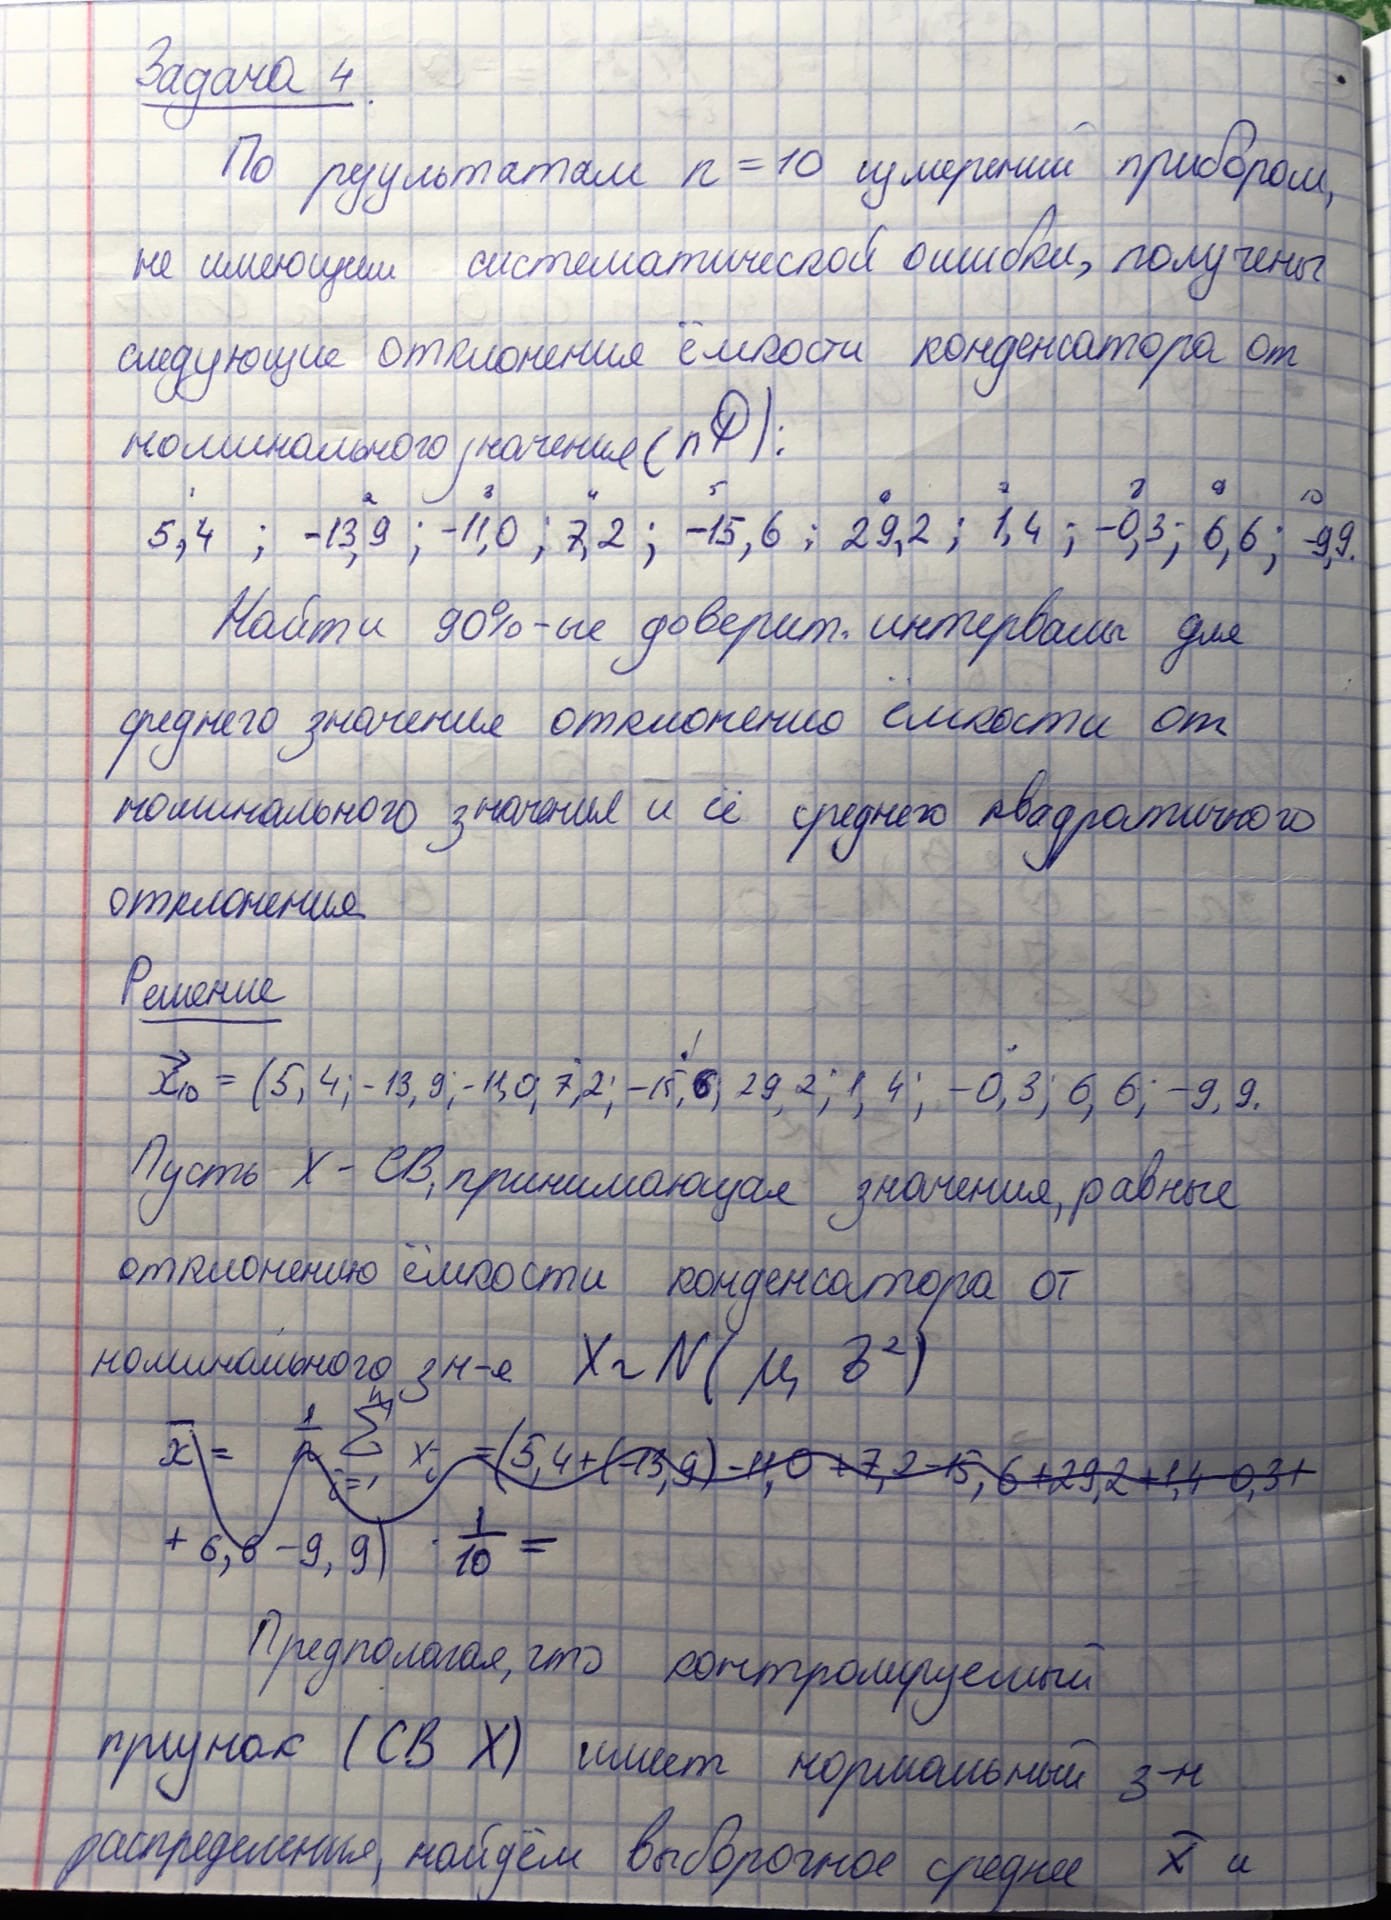 Задача 4.
По результатам n = 10 измерений прибором,
не имеющем систематической ошибки, получены
следующие отклонения ёмкости конденсатора от
номинального значения (пФ):
1 2 3 4 5 6 7 8 9 10
5,4 ; -13,9 ; -11,0 ; 7,2 ; -15,6 ; 29,2 ; 1,4 ; -0,3 ; 6,6 ; -9,9.
Найти 90%-ые доверит. интервалы для
среднего значения отклонению ёмкости от
номинального значения и её среднего квадратичного
отклонения
Решение
x⃗₁₀ = (5,4; -13,9; -11,0; 7,2; -15,6; 29,2; 1,4; -0,3; 6,6; -9,9.
Пусть X - СВ, принимающая значения, равные
отклонению ёмкости конденсатора от
номинального зн-я X ~ N(μ, σ²)
x̄ = 1/n Σ i=1 n xᵢ = (5,4+(-13,9)-11,0+7,2-15,6+29,2+1,4-0,3+
+6,6-9,9) · 1/10 =
Предполагая, что контролируемый
признак (СВ X) имеет нормальный з-н
распределения, найдём выборочное среднее x̄ и